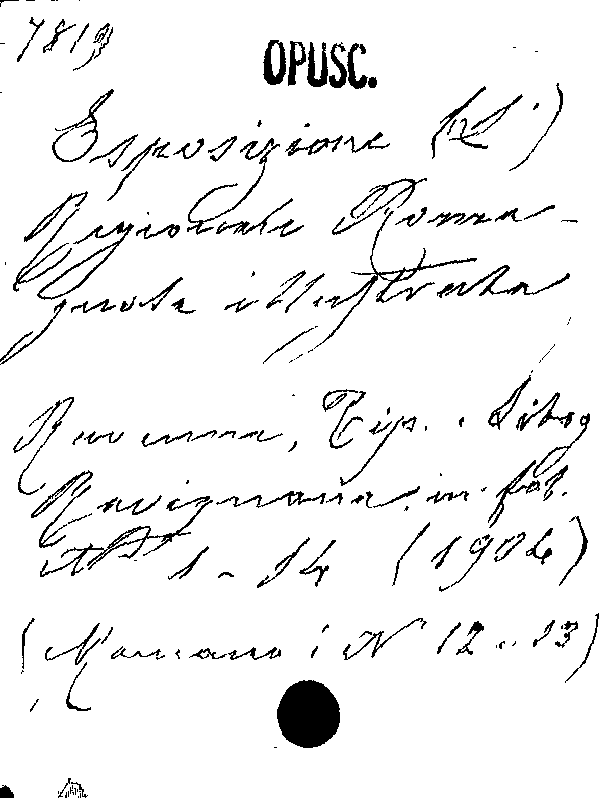 7813
OPUSC.
Esposizione (L')
Regionale Roma-
gnola illustrata
Ravenna, Tip. Litog
Ravegnana. in fol.
N° 1 - 14 (1904)
(Mancano i N° 12. 13)